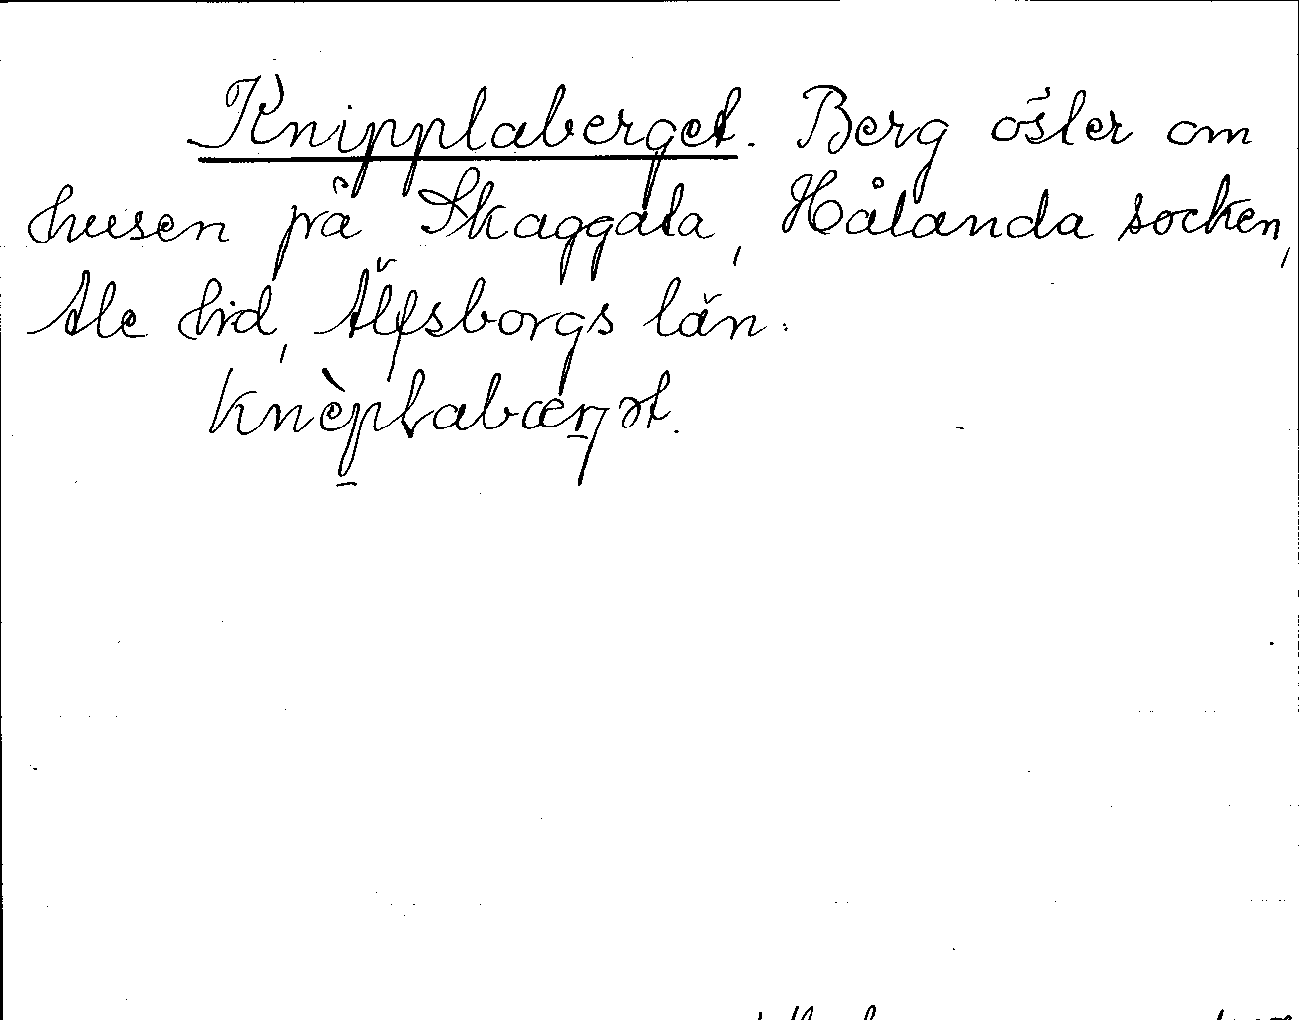 Knipplaberget. Berg öster om
husen på Skaggata, Hålanda socken,
Ale hd, Älfsborgs län.
knèplabærjət.